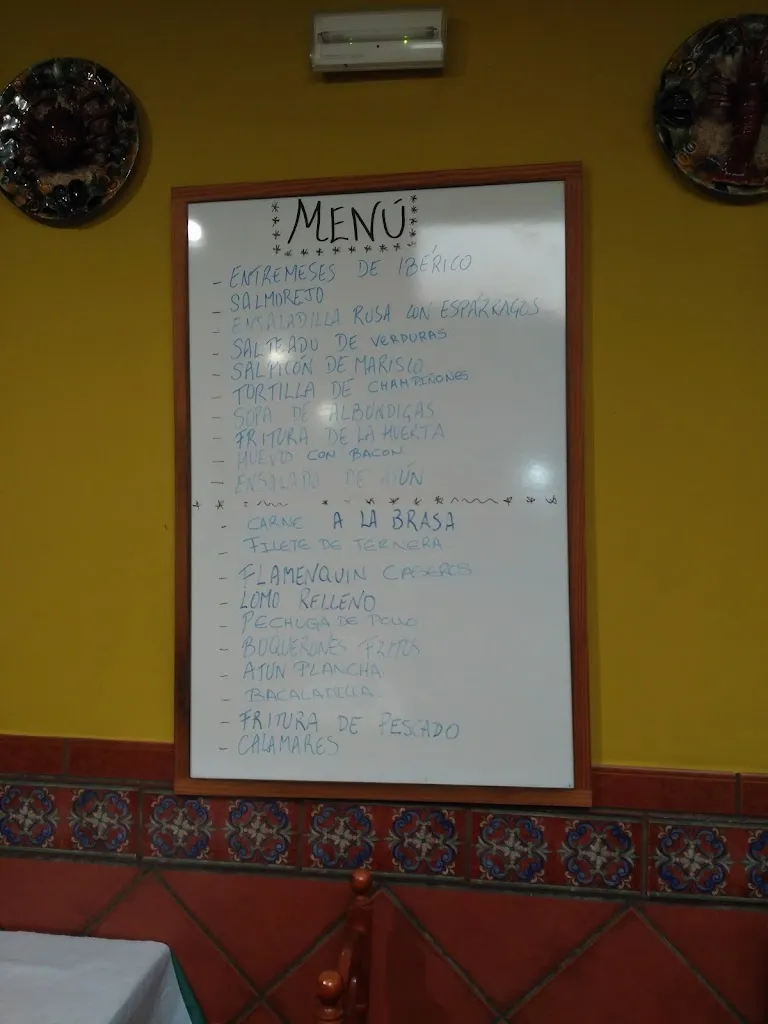 MENÚ
- ENTREMESES DE IBÉRICO
- SALMOREJO
- ENSALADILLA RUSA CON ESPÁRRAGOS
- SALTEADO DE VERDURAS
- SALPICÓN DE MARISCO
- TORTILLA DE CHAMPIÑONES
- SOPA DE ALBÓNDIGAS
- FRITURA DE LA HUERTA
- HUEVO CON BACON
- ENSALADA DE ATÚN
- CARNE A LA BRASA
- FILETE DE TERNERA
- FLAMENQUIN CASEROS
- LOMO RELLENO
- PECHUGA DE POLLO
- BOQUERONES FRITOS
- ATÚN PLANCHA
- BACALADILLA
- FRITURA DE PESCADO
- CALAMARES